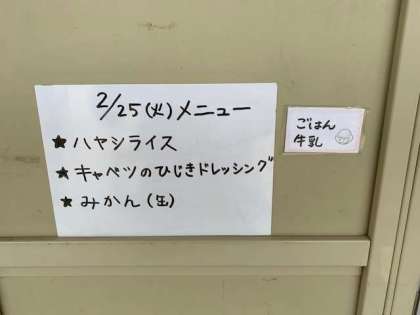 2/25(火)メニュー
★ハヤシライス
★キャベツのひじきドレッシング
★みかん(生)
ごはん
牛乳